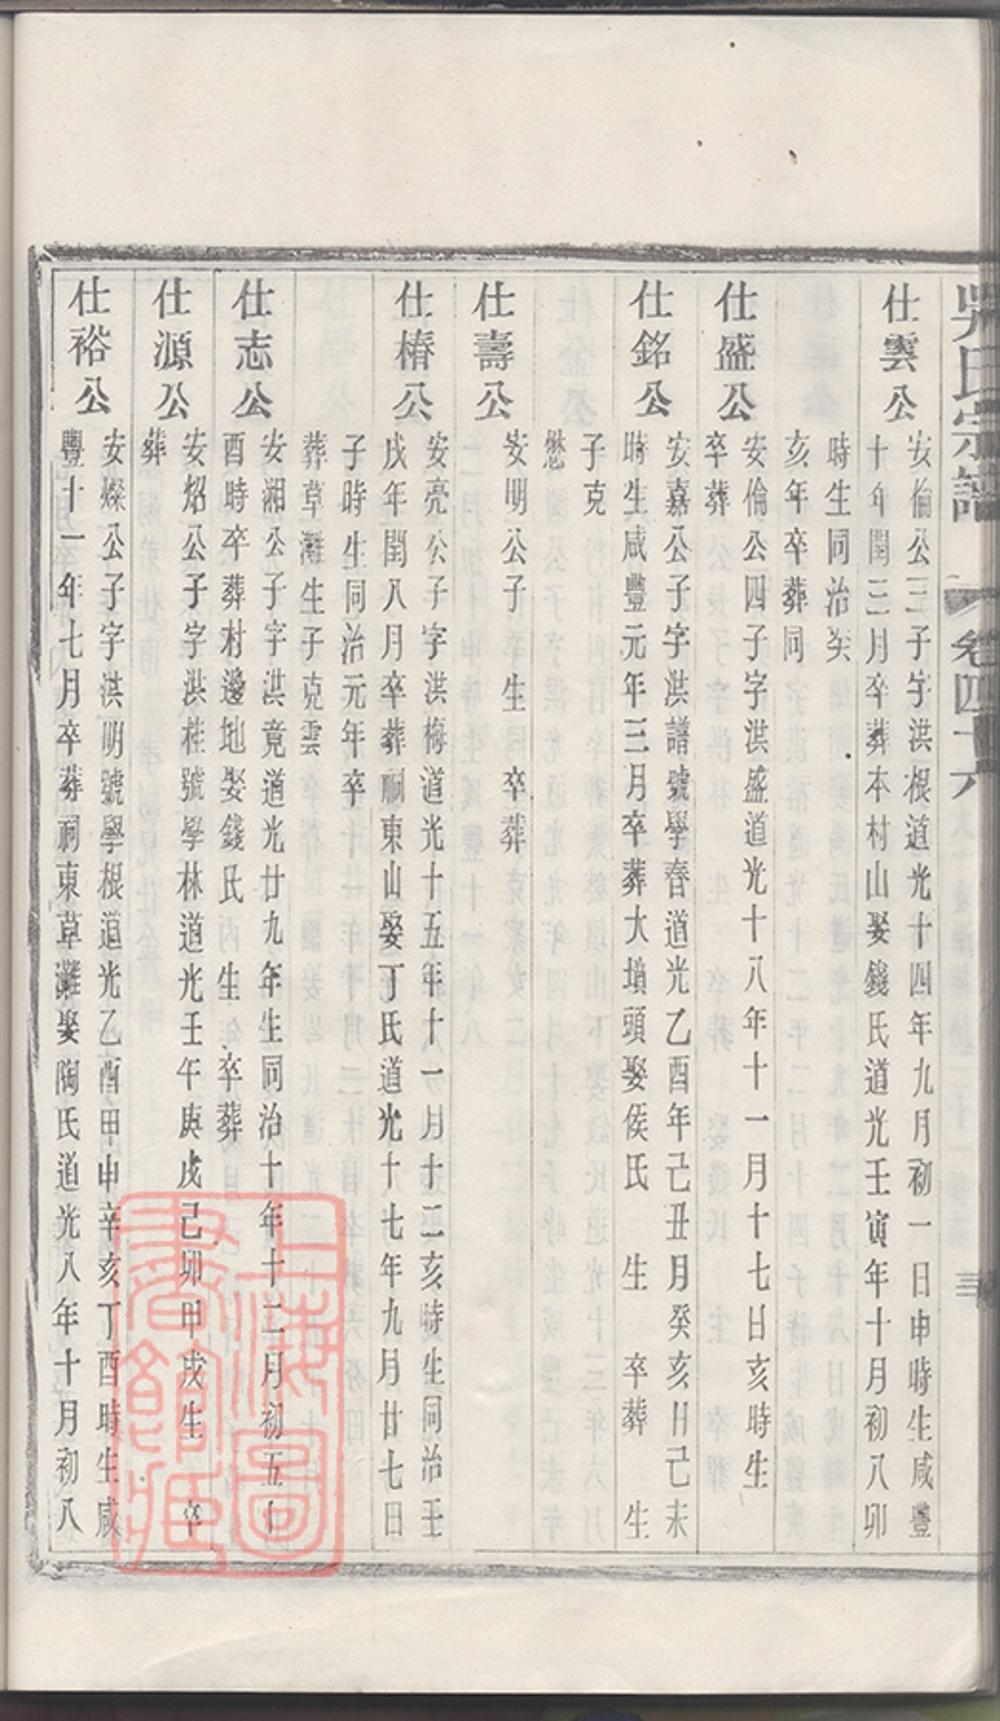 吳氏宗譜 卷四十六
仕雲公
安倫公三子字洪根道光十四年九月初一日申時生咸豐
十年閏三月卒葬本村山娶錢氏道光壬寅年十月初八卯
時生同治癸
亥年卒葬同
仕盛公
安倫公四子字洪盛道光十八年十一月十七日亥時生
卒葬
仕銘公
安嘉公子字洪譜號學春道光乙酉年己丑月癸亥日己未
時生咸豐元年三月卒葬大墳頭娶侯氏 生 卒葬 生
子克
懋
仕壽公
安明公子 生 卒葬
仕椿公
安亮公子字洪梅道光十五年十一月十二亥時生同治壬
戌年閏八月卒葬祠東山娶丁氏道光十七年九月廿七日
子時生同治元年卒
葬草灘生子克雲
仕志公
安湘公子字洪竟道光廿九年生同治十年十二月初五
酉時卒葬村邊地娶錢氏 生 卒葬
仕源公
安炤公子字洪桂號學林道光壬午庚戌己卯甲戌生 卒
葬
仕裕公
安燦公子字洪明號學根道光乙酉甲申辛亥丁酉時生咸
豐十一年七月卒葬祠東草灘娶陶氏道光八年十月初八
上海圖書館藏